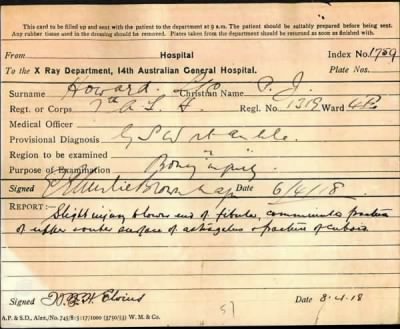 This card to be filled up and sent with the patient to the department at 9 a.m. The patient should be suitably prepared before being sent.
Any rubber tissue used in the dressing should be removed. Plates taken from the department should be returned as soon as finished with.
From Hospital Index No. 1709
To the X Ray Department, 14th Australian General Hospital. Plate Nos.
Surname Howard Christian Name P. J.
Regt. or Corps 7th A.L.H. Regl. No. 1319 Ward 4B
Medical Officer
Provisional Diagnosis G S W Rt ankle.
Region to be examined
Purpose of Examination Bony injury
Signed Brown Date 6/4/18
REPORT:— Slight injury to lower end of fibula, comminuted fracture
of upper outer surface of astragalus & fracture of cuboid
Signed Date 8.4.18
A.P. & S.D., Alex./No. 745/8-5-17/1000 (3750/53) W. M. & Co.